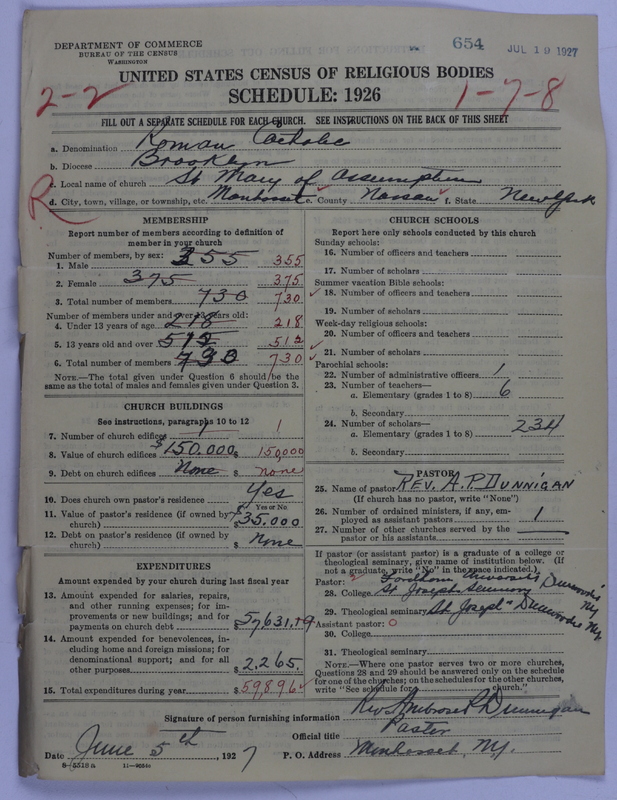 DEPARTMENT OF COMMERCE
BUREAU OF THE CENSUS
WASHINGTON
654 JUL 19 1927
UNITED STATES CENSUS OF RELIGIOUS BODIES
SCHEDULE: 1926
2-2 1-7-8
FILL OUT A SEPARATE SCHEDULE FOR EACH CHURCH. SEE INSTRUCTIONS ON THE BACK OF THIS SHEET
a. Denomination Roman Catholic
b. Diocese Brooklyn
c. Local name of church St Mary of Assumption
R
d. City, town, village, or township, etc. Manhasset e. County Nassau f. State New York
MEMBERSHIP
Report number of members according to definition of
member in your church
Number of members, by sex:
1. Male 355 355
2. Female 375 375
3. Total number of members 730 730
Number of members under and over 13 years old:
4. Under 13 years of age 218 218
5. 13 years old and over 512 512
6. Total number of members 730 730
NOTE.—The total given under Question 6 should be the
same as the total of males and females given under Question 3.
CHURCH BUILDINGS
See instructions, paragraphs 10 to 12
7. Number of church edifices 1 1
8. Value of church edifices $150,000 $ 150,000
9. Debt on church edifices None $ none
10. Does church own pastor's residence Yes
Yes or No
11. Value of pastor's residence (if owned by
church) $ 35.000
12. Debt on pastor's residence (if owned by
church) $ None
EXPENDITURES
Amount expended by your church during last fiscal year
13. Amount expended for salaries, repairs,
and other running expenses; for im-
provements or new buildings; and for
payments on church debt $ 57,631.19
14. Amount expended for benevolences, in-
cluding home and foreign missions; for
denominational support; and for all
other purposes $ 2,265.
15. Total expenditures during year $ 59,896
CHURCH SCHOOLS
Report here only schools conducted by this church
Sunday schools:
16. Number of officers and teachers
17. Number of scholars
Summer vacation Bible schools:
18. Number of officers and teachers
19. Number of scholars
Week-day religious schools:
20. Number of officers and teachers
21. Number of scholars
Parochial schools:
22. Number of administrative officers 1
23. Number of teachers—
a. Elementary (grades 1 to 8) 6
b. Secondary
24. Number of scholars— 234
a. Elementary (grades 1 to 8)
b. Secondary
PASTOR
25. Name of pastor REV. A. P. DUNNIGAN
(If church has no pastor, write "None")
26. Number of ordained ministers, if any, em-
ployed as assistant pastors 1
27. Number of other churches served by the
pastor or his assistants
If pastor (or assistant pastor) is a graduate of a college or
theological seminary, give name of institution below. (If
not a graduate, write "No" in the space indicated.)
Pastor: Fordham University
28. College St Josephs Seminary Dunwoodie NY
29. Theological seminary St Joseph's Dunwoodie NY.
Assistant pastor: O
30. College
31. Theological seminary
NOTE.—Where one pastor serves two or more churches,
Questions 28 and 29 should be answered only on the schedule
for one of the churches; on the schedules for the other churches,
write "See schedule for church."
Signature of person furnishing information Rev Ambrose P. Dunnigan
Official title Pastor
Date June 5th, 1927 P. O. Address Manhasset, N.Y.
8—5518 a